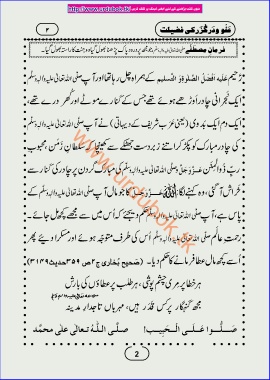 http://www.urdubook.tk
عفو و درگزر کی فضیلت
۲
فرمانِ مصطفٰے
رحیم علیہ افضل الصلوۃ والتسلیم کے ہمراہ چل رہا تھا اور آپ صلی اللہ تعالیٰ علیہ والہ وسلم
ایک نجرانی چادر اوڑھے ہوئے تھے جس کے کنارے موٹے اور کھردرے تھے،
ایک دم ایک بدوی (یعنی عرب شریف کے دیہاتی) نے آپ صلی اللہ تعالیٰ علیہ والہ وسلم
کی چادر مبارک کو پکڑ کر اتنے زبردست جھٹکے سے کھینچا کہ سلطانِ زمن محبوبِ
ربِّ ذوالمنن عزوجل و صلی اللہ تعالیٰ علیہ والہ وسلم کی مبارک گردن پر چادر کی کنار سے
خراش آ گئی، وہ کہنے لگا: اللہ عزوجل کا جو مال آپ صلی اللہ تعالیٰ علیہ والہ وسلم کے
پاس ہے، آپ صلی اللہ تعالیٰ علیہ والہ وسلم حکم دیجئے کہ اُس میں سے مجھے کچھ مل جائے۔
رحمتِ عالم صلی اللہ تعالیٰ علیہ والہ وسلم اُس کی طرف متوجہ ہوئے اور مسکرا دیئے پھر
اُسے کچھ مال عطا فرمانے کا حکم دیا۔ (صحیح بخاری ج۲ ص۳۵۹ حدیث ۳۱۴۹)
ہر خطا پر مری چشم پوشی، ہر طلب پر عطاؤں کی بارش
مجھ گنہگار پر کس قدر ہیں، مہرباں تاجدارِ مدینہ
صلوا علی الحبیب! صلی اللہ تعالی علی محمد
2
www.urdubook.tk